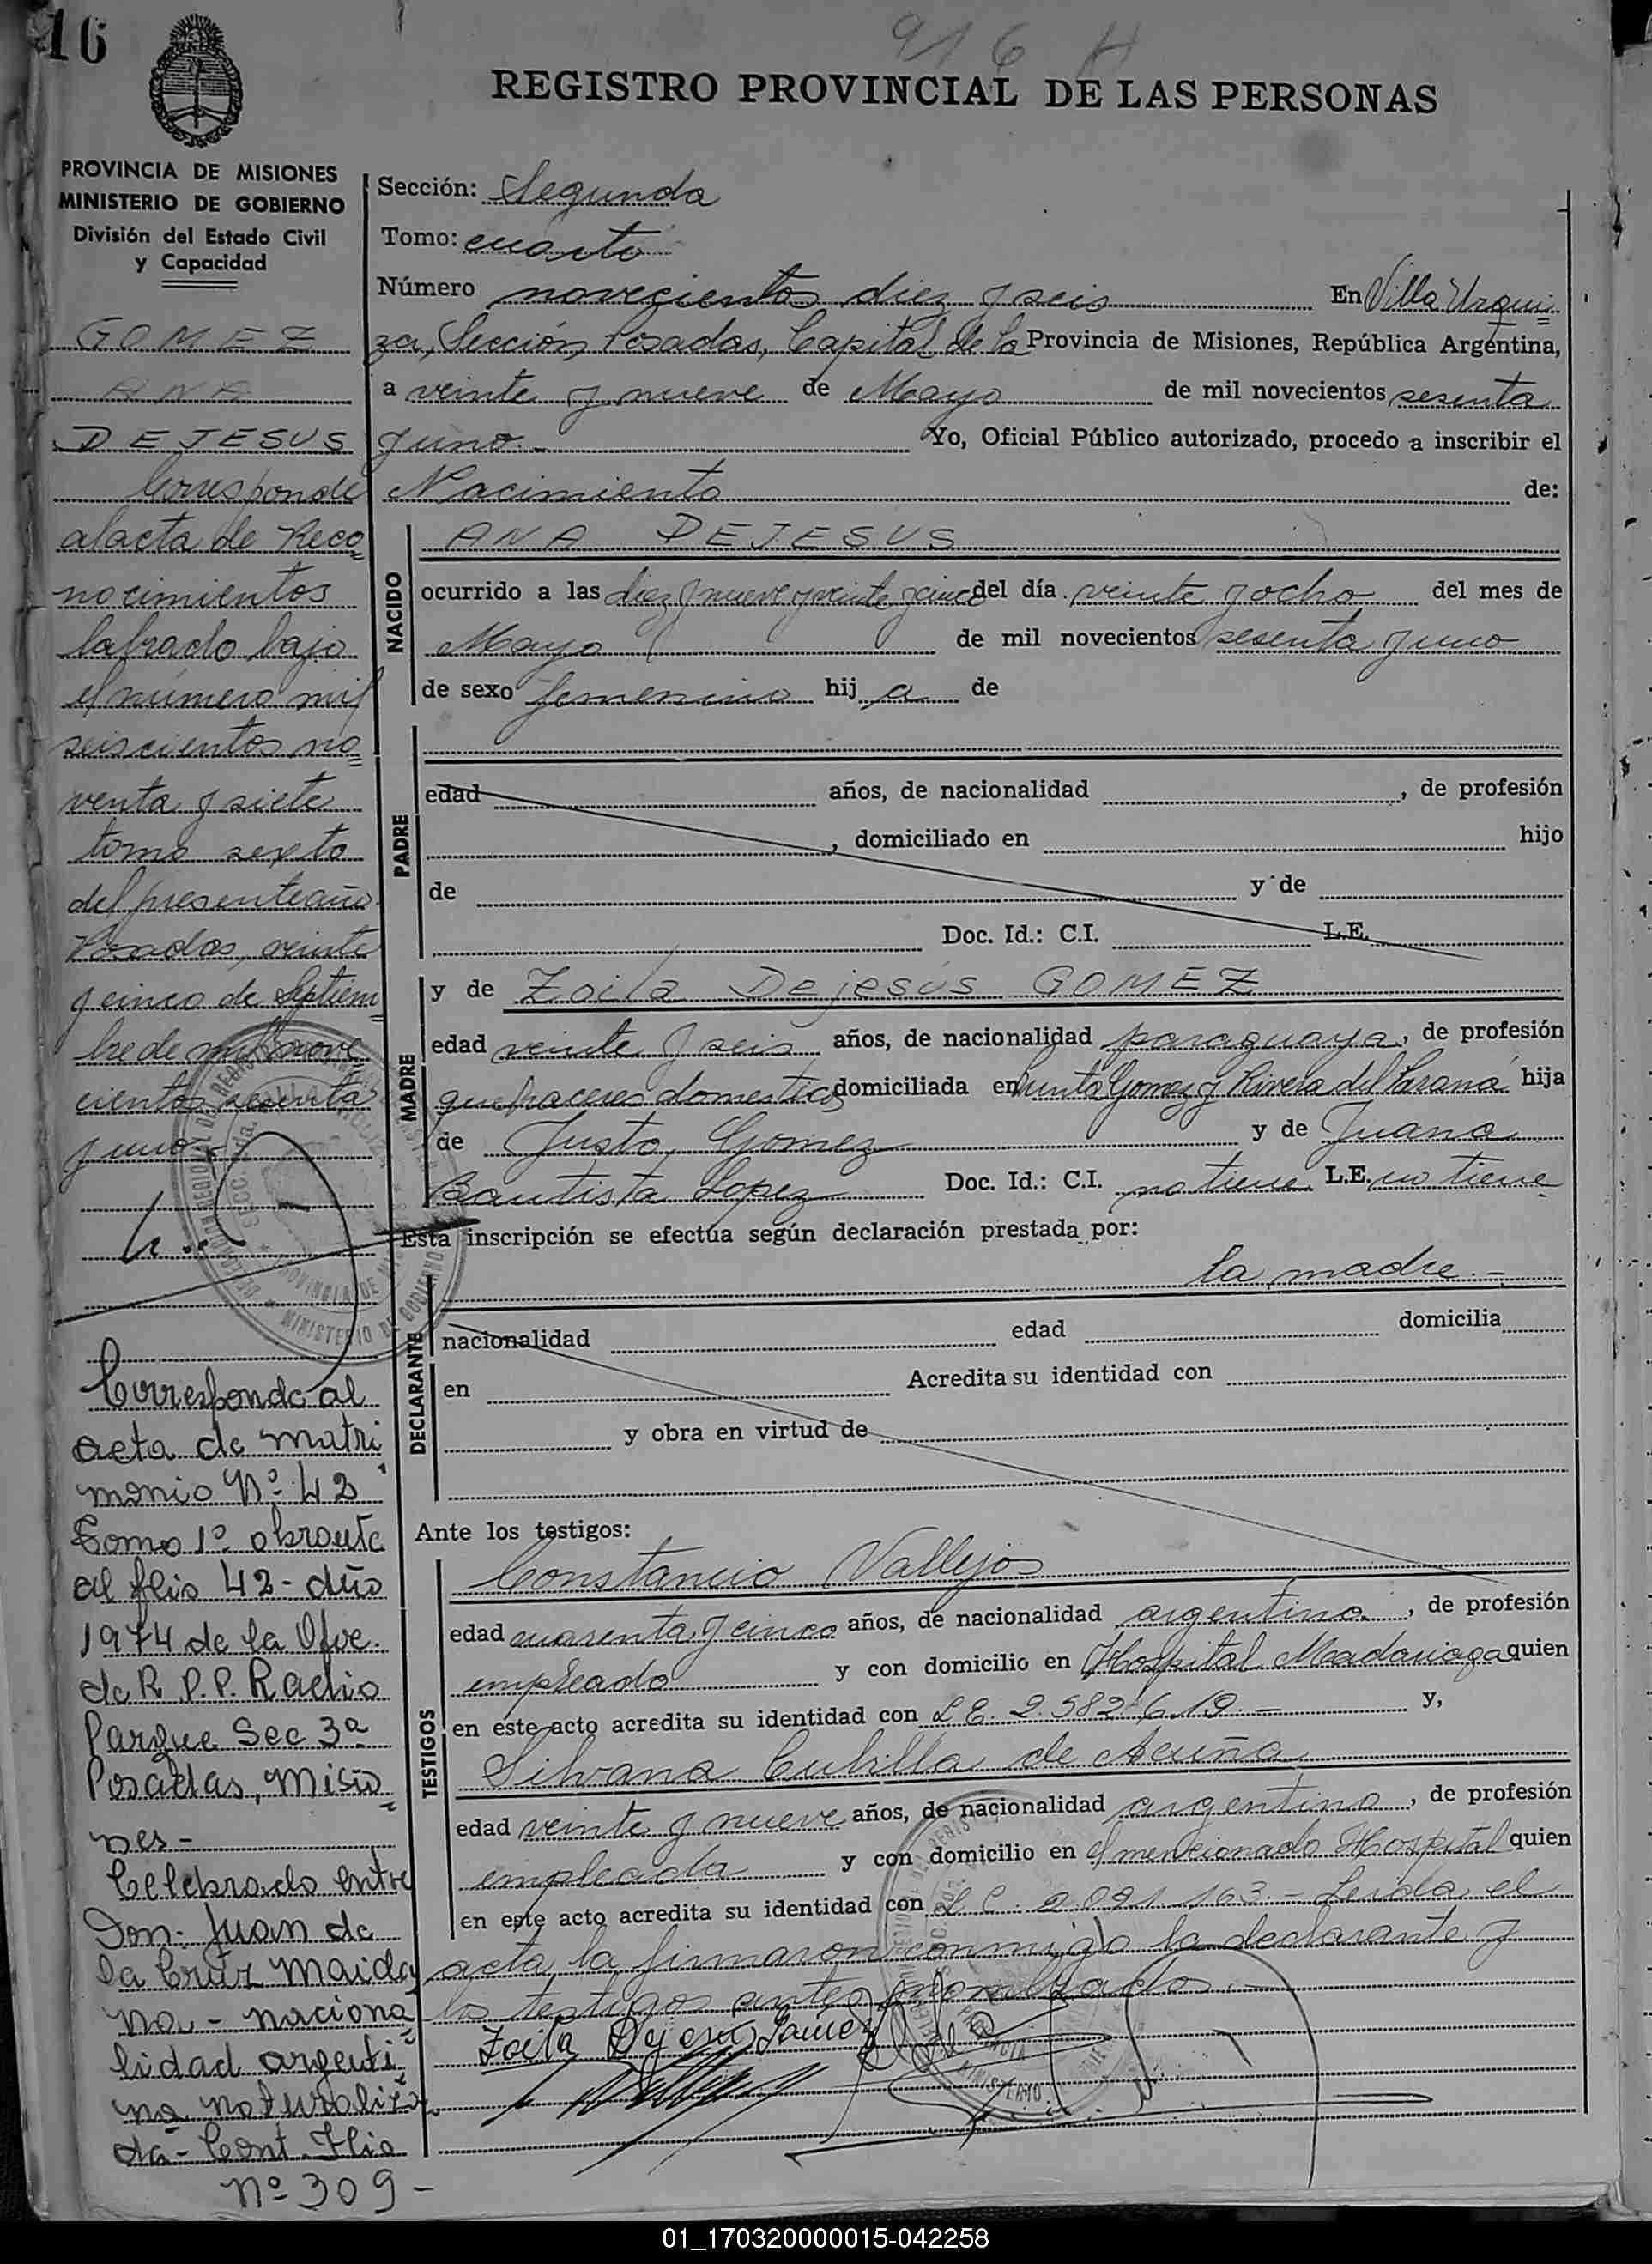 16
916 H
REGISTRO PROVINCIAL DE LAS PERSONAS
PROVINCIA DE MISIONES
MINISTERIO DE GOBIERNO
División del Estado Civil
y Capacidad
GOMEZ
ANA
DEJESUS
Corresponde
al acta de Reco=
nocimientos
labrado bajo
el número mil
seiscientos no=
venta y siete
tomo sexto
del presente año.
Posadas, veinte
y cinco de Septiem=
bre de mil nove
cientos sesenta
y uno.-
Corresponde al
acta de matri
monio Nº 42
Tomo 1º obrante
al flio 42 - año
1974 de la Ofve.
de R. P. P. Radio
Parque Sec 3ª
Posadas, Misio=
nes -
Celebrado entre
Don: Juan de
la Cruz Maida
na - naciona=
lidad argenti=
na naturaliza=
da - Cont. Flio
Nº 309 -
Sección: Segunda
Tomo: cuarto
Número novecientos diez y seis En Villa Urqui=
za, Sección Posadas, Capital de la Provincia de Misiones, República Argentina,
a veinte y nueve de Mayo de mil novecientos sesenta
y uno.- Yo, Oficial Público autorizado, procedo a inscribir el
Nacimiento de:
NACIDO
ANA DEJESUS
ocurrido a las diez y nueve y veinte y cinco del día veinte y ocho del mes de
Mayo de mil novecientos sesenta y uno
de sexo femenino hij a de
PADRE
edad años, de nacionalidad , de profesión
, domiciliado en hijo
de y de
Doc. Id.: C.I. L.E.
MADRE
y de Zoila Dejesús GOMEZ
edad veinte y seis años, de nacionalidad paraguaya, de profesión
quehaceres domesticos domiciliada en Punta Gomez y Rivera del Parana hija
de Justo Gomez y de Juana
Bautista Lopez Doc. Id.: C.I. no tiene L.E. no tiene
Esta inscripción se efectúa según declaración prestada por:
la madre.-
DECLARANTE
nacionalidad edad domicilia
en Acredita su identidad con
y obra en virtud de
Ante los testigos:
TESTIGOS
Constancio Vallejos
edad cuarenta y cinco años, de nacionalidad argentina, de profesión
empleado y con domicilio en Hospital Madariaga quien
en este acto acredita su identidad con L E. 2.582.619.- y,
Silvana Cubilla de Acuña
edad veinte y nueve años, de nacionalidad argentina, de profesión
empleada y con domicilio en el mencionado Hospital quien
en este acto acredita su identidad con L C. 2.091.163.- Leida el
acta, la firmaron conmigo la declarante y
los testigos antes nombrados.-
Zoila Dejesu Gomez
01_170320000015-042258